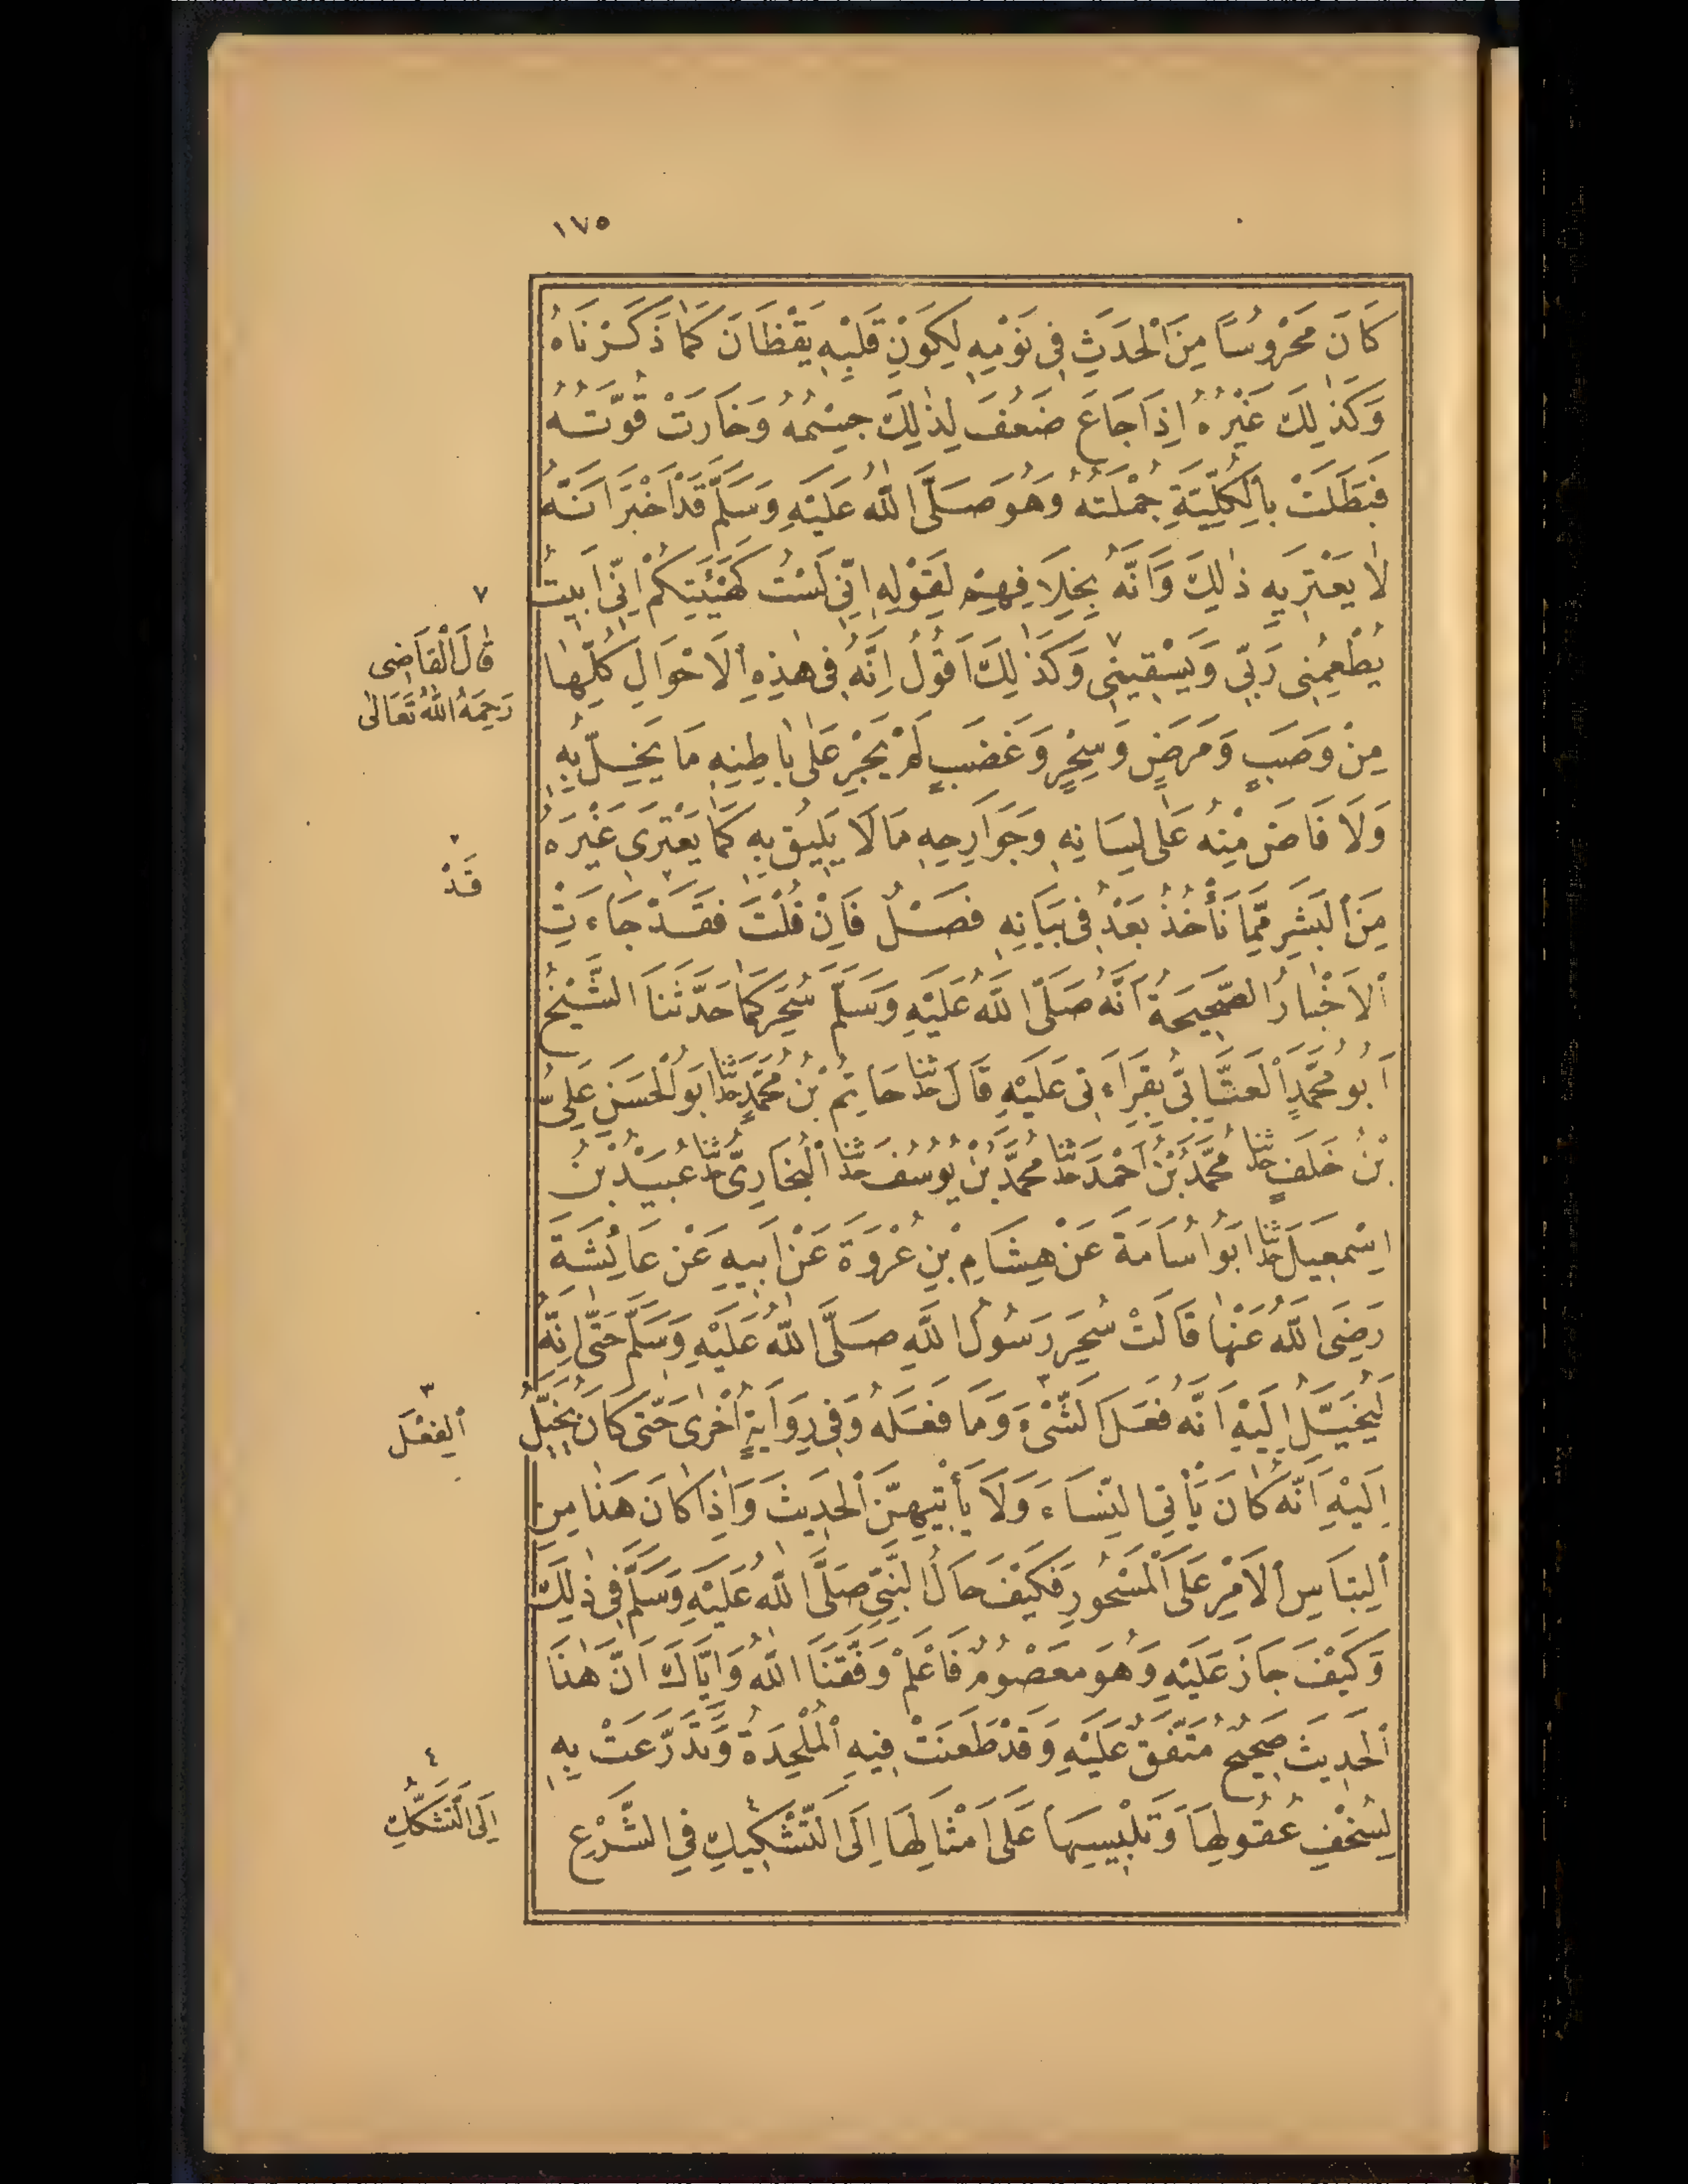 ١٧٥
كَانَ مَحْرُوسًا مِنَ الْحَدَثِ فِى نَوْمِهِ لِكَوْنِ قَلْبِهِ يَقْظَانَ كَمَا ذَكَرْنَاهُ
وَكَذٰلِكَ غَيْرُهُ اِذَا جَاعَ ضَعُفَ لِذٰلِكَ جِسْمُهُ وَخَارَتْ قُوَّتُهُ
فَبَطَلَتْ بِالْكُلِّيَّةِ جُمْلَتُهُ وَهُوَ صَلَّى اللّٰهُ عَلَيْهِ وَسَلَّمَ قَدْ اَخْبَرَ اَنَّهُ
لَا يَعْتَرِيهِ ذٰلِكَ وَاَنَّهُ بِخِلَافِهِمْ لِقَوْلِهِ اِنِّى لَسْتُ كَهَيْئَتِكُمْ اِنِّى اَبِيتُ
يُطْعِمُنِى رَبِّى وَيَسْقِينِى ٧ وَكَذٰلِكَ اَقُولُ اِنَّهُ فِى هٰذِهِ الْاَحْوَالِ كُلِّهَا
مِنْ وَصَبٍ وَمَرَضٍ وَسِحْرٍ وَغَضَبٍ لَمْ يَجْرِ عَلٰى بَاطِنِهِ مَا يُخِلُّ بِهِ
وَلَا فَاضَ مِنْهُ عَلٰى لِسَانِهِ وَجَوَارِحِهِ مَا لَا يَلِيقُ بِهِ كَمَا يَعْتَرِى غَيْرَهُ
مِنَ الْبَشَرِ مِمَّا نَأْخُذُ بَعْدُ فِى بَيَانِهِ فَصْلٌ فَاِنْ قُلْتَ فَقَدْ جَاءَتِ
الْاَخْبَارُ الصَّحِيحَةُ اَنَّهُ صَلَّى اللّٰهُ عَلَيْهِ وَسَلَّمَ سُحِرَ كَمَا حَدَّثَنَا الشَّيْخُ
اَبُو مُحَمَّدٍ الْعَتَّابِىُّ بِقِرَاءَتِى عَلَيْهِ قَالَ حدثنا حَاتِمُ بْنُ مُحَمَّدٍ حدثنا اَبُو الْحَسَنِ عَلِىُّ
بْنُ خَلَفٍ حدثنا مُحَمَّدُ بْنُ اَحْمَدَ حدثنا مُحَمَّدُ بْنُ يُوسُفَ حدثنا الْبُخَارِىُّ حدثنا عُبَيْدُ بْنُ
اِسْمٰعِيلَ حدثنا اَبُو اُسَامَةَ عَنْ هِشَامِ بْنِ عُرْوَةَ عَنْ اَبِيهِ عَنْ عَائِشَةَ
رَضِىَ اللّٰهُ عَنْهَا قَالَتْ سُحِرَ رَسُولُ اللّٰهِ صَلَّى اللّٰهُ عَلَيْهِ وَسَلَّمَ حَتّٰى اِنَّهُ
لَيُخَيَّلُ اِلَيْهِ اَنَّهُ فَعَلَ الشَّىْءَ ٣ وَمَا فَعَلَهُ وَفِى رِوَايَةٍ اُخْرٰى حَتّٰى كَانَ يُخَيَّلُ
اِلَيْهِ اَنَّهُ كَانَ يَأْتِى النِّسَاءَ وَلَا يَأْتِيهِنَّ الْحَدِيثَ وَاِذَا كَانَ هٰذَا مِنِ
الْتِبَاسِ الْاَمْرِ عَلَى الْمَسْحُورِ فَكَيْفَ حَالُ النَّبِىِّ صَلَّى اللّٰهُ عَلَيْهِ وَسَلَّمَ فِى ذٰلِكَ
وَكَيْفَ جَازَ عَلَيْهِ وَهُوَ مَعْصُومٌ فَاعْلَمْ وَفَّقَنَا اللّٰهُ وَاِيَّاكَ اَنَّ هٰذَا
الْحَدِيثَ صَحِيحٌ مُتَّفَقٌ عَلَيْهِ وَقَدْ طَعَنَتْ فِيهِ الْمُلْحِدَةُ وَتَذَرَّعَتْ بِهِ
لِسُخْفِ عُقُولِهَا وَتَلْبِيسِهَا عَلٰى اَمْثَالِهَا اِلَى التَّشْكِيكِ ٤ فِى الشَّرْعِ
٧
قَالَ الْقَاضِى
رَحِمَهُ اللّٰهُ تَعَالٰى
قَدْ
٣
الْفِعْلَ
٤
اِلَى التَّشَكُّكِ